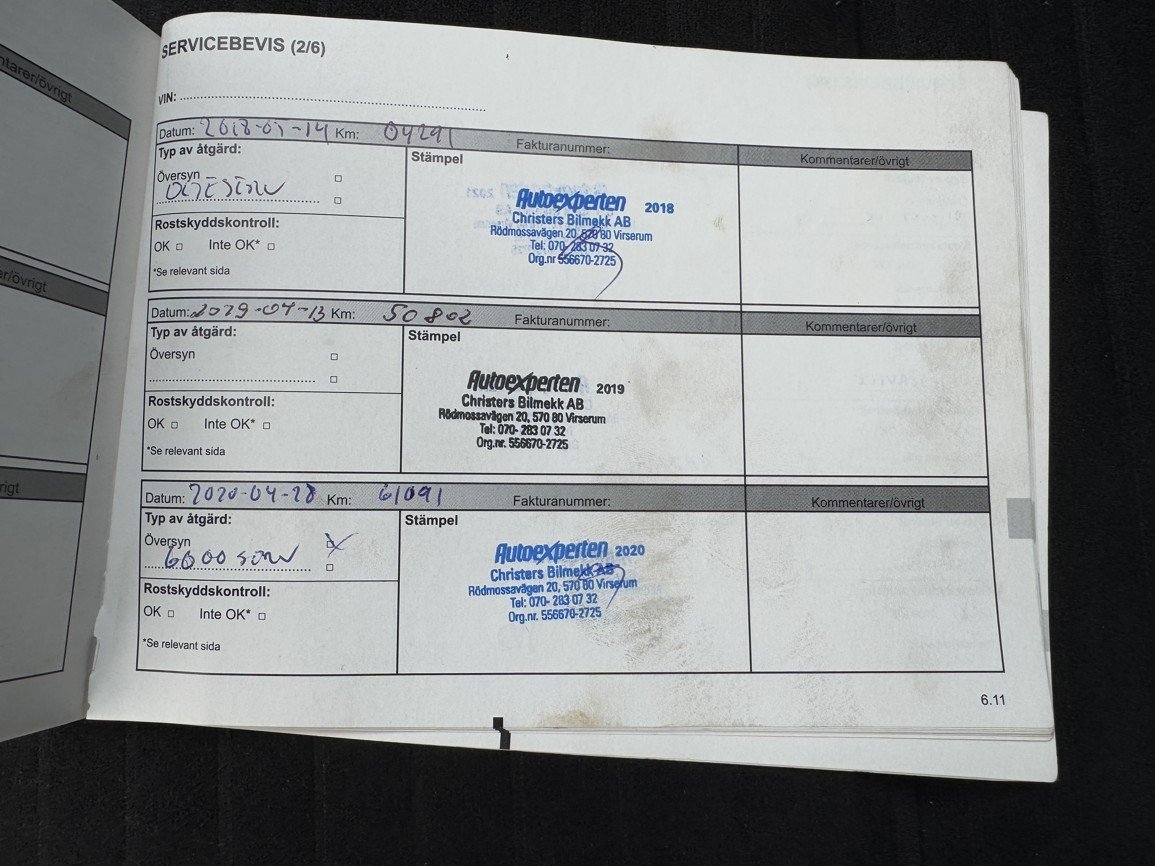 ntarer/övrigt
er/övrigt
rigt
SERVICEBEVIS (2/6)
VIN:
Datum: 2018-05-14 Km: 04291 Fakturanummer: Kommentarer/övrigt
Typ av åtgärd: Stämpel
Översyn
Rostskyddskontroll:
OK Inte OK*
*Se relevant sida
Autoexperten 2018
Christers Bilmekk AB
Rödmossavägen 20, 570 80 Virserum
Tel: 070- 283 07 32
Org.nr 556670-2725
Datum: 2019-04-13 Km: 50802 Fakturanummer: Kommentarer/övrigt
Typ av åtgärd: Stämpel
Översyn
Rostskyddskontroll:
OK Inte OK*
*Se relevant sida
Autoexperten 2019
Christers Bilmekk AB
Rödmossavägen 20, 570 80 Virserum
Tel: 070- 283 07 32
Org.nr. 556670-2725
Datum: 2020-04-28 Km: 61091 Fakturanummer: Kommentarer/övrigt
Typ av åtgärd: Stämpel
Översyn
6000
Rostskyddskontroll:
OK Inte OK*
*Se relevant sida
Autoexperten 2020
Christers Bilmekk AB
Rödmossavägen 20, 570 80 Virserum
Tel: 070- 283 07 32
Org.nr. 556670-2725
6.11